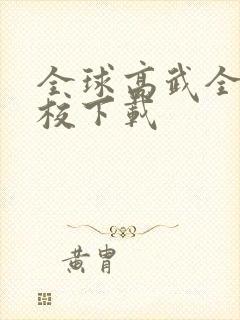 全球高武全
校下载
黄胄